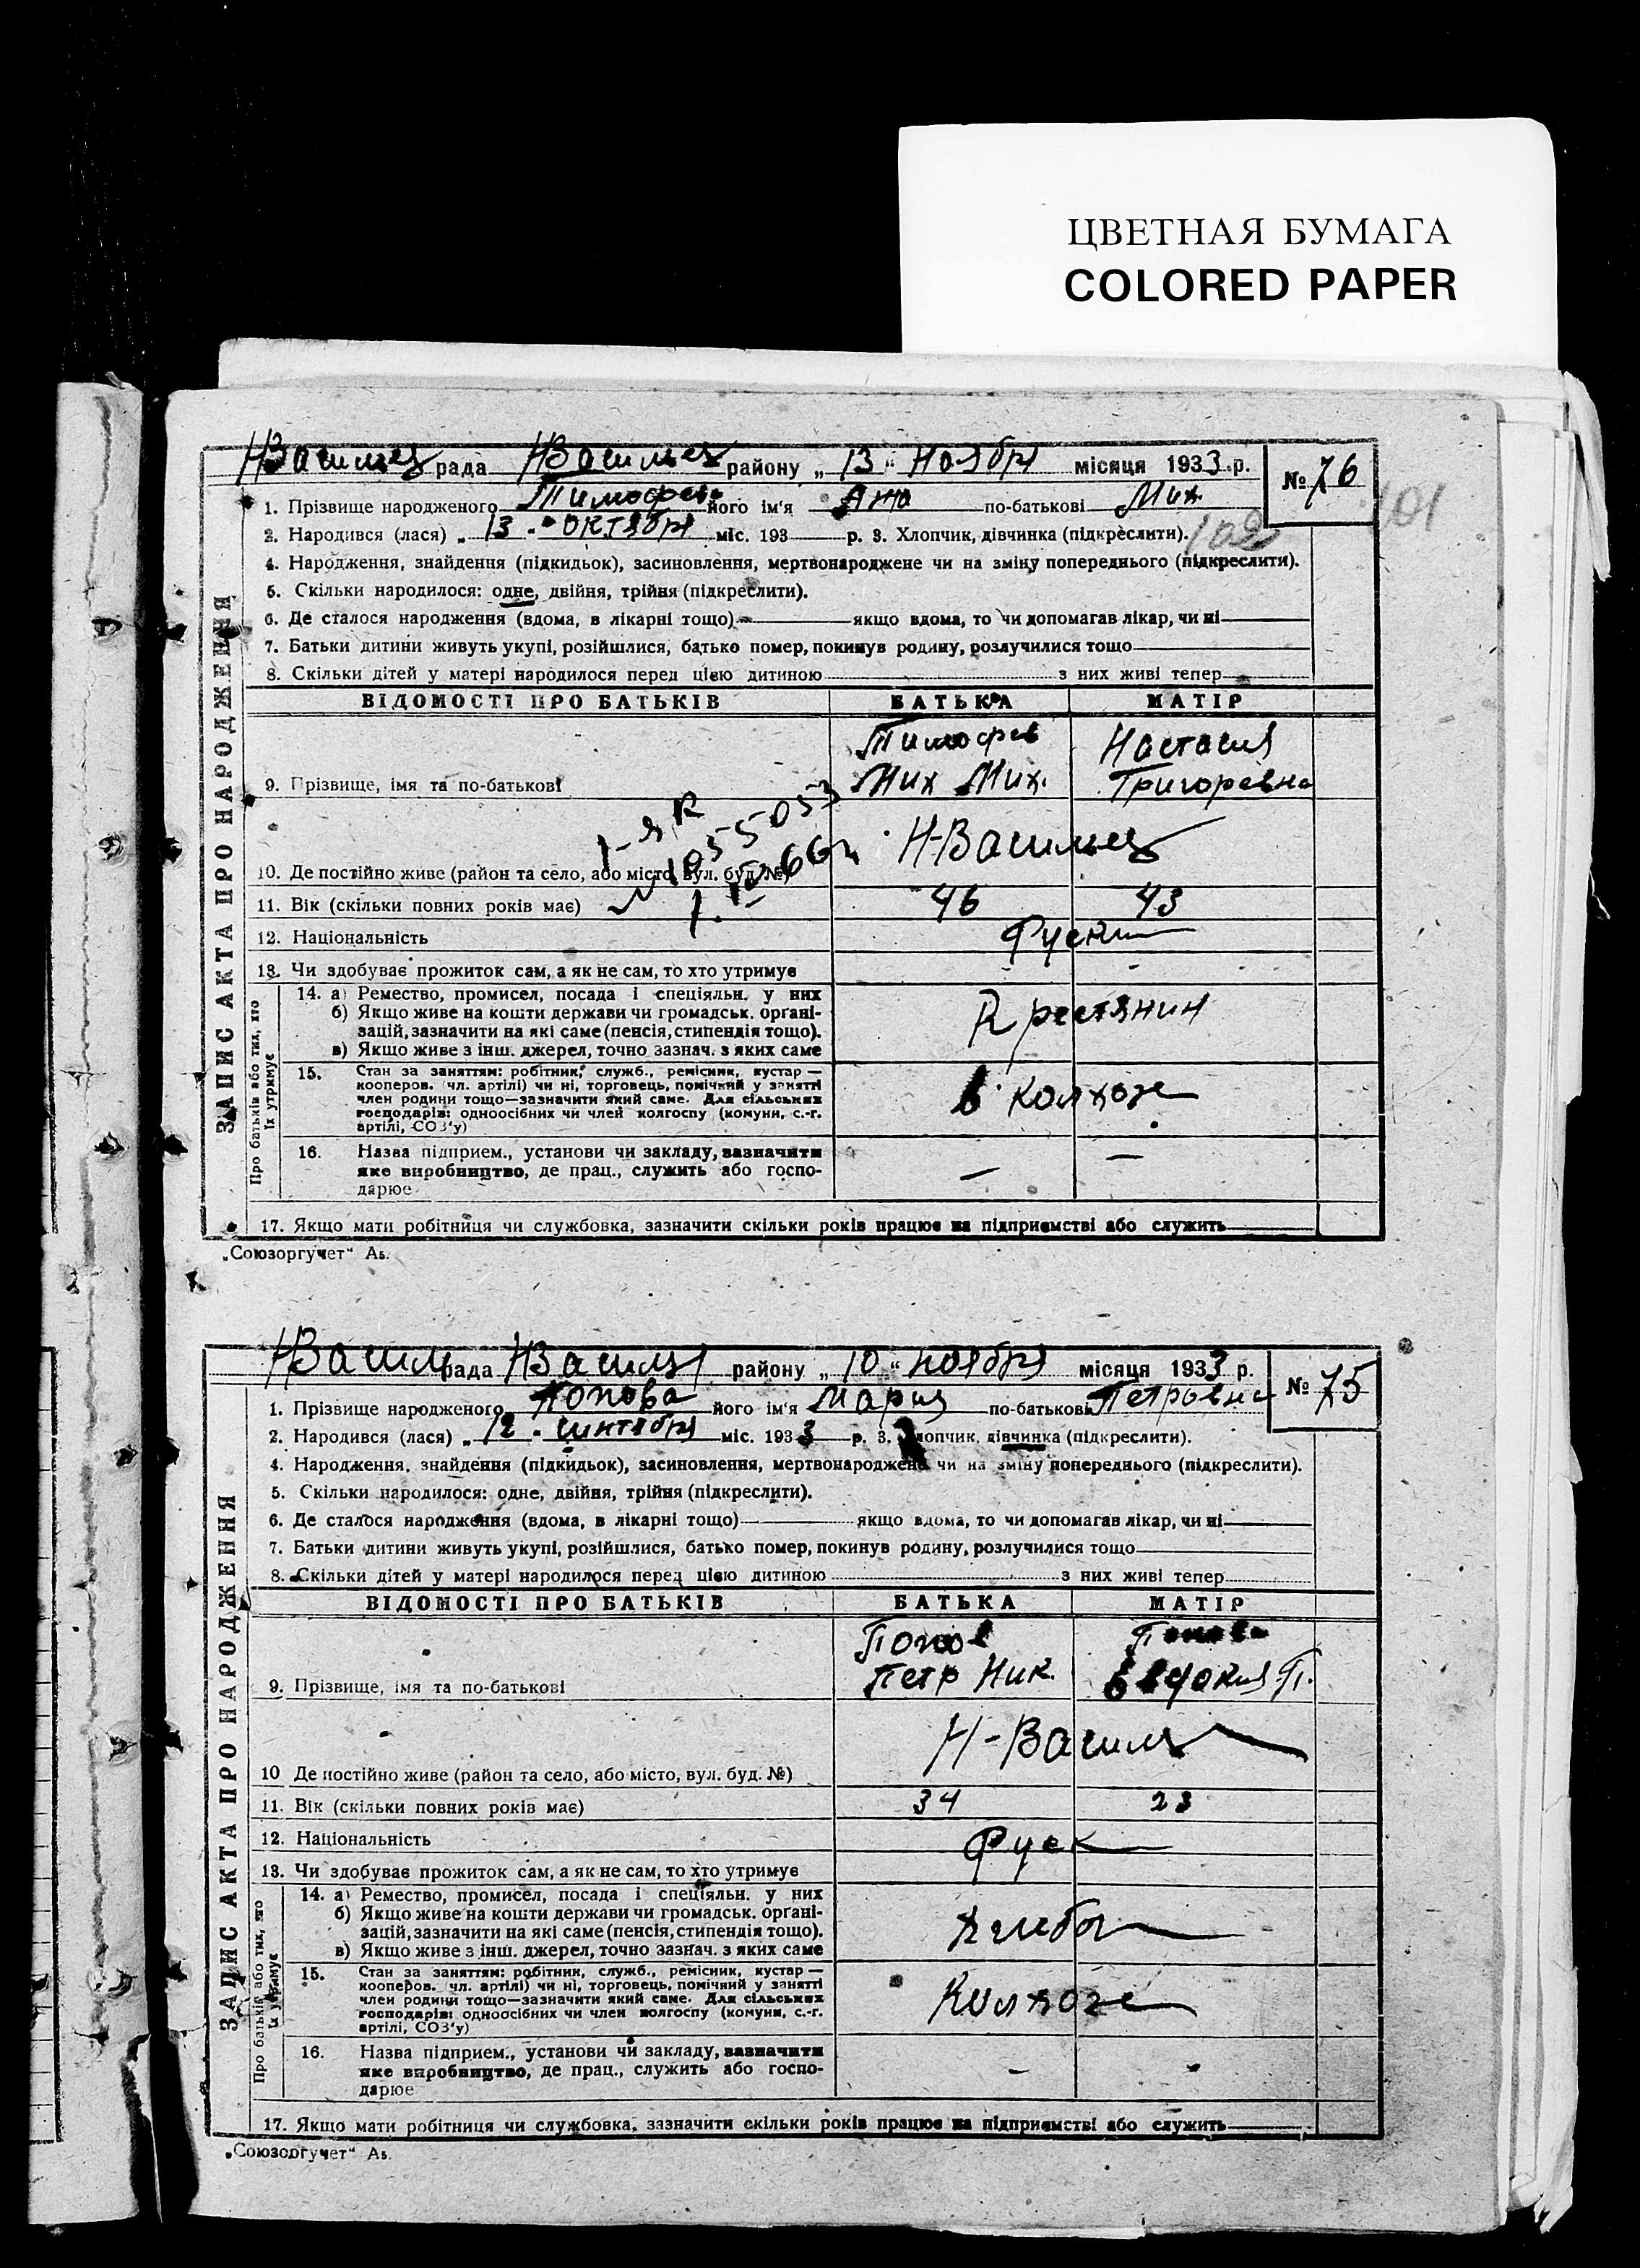 ЦВЕТНАЯ БУМАГА
COLORED PAPER
НВасильев рада НВасильев району „ 13 “ Ноября місяця 1933 р. № 76
101
1. Прізвище народженого Тимофеев його ім‘я по-батькові Мих.
2. Народився (лася) „ 13 октября міс. 193 р. 3. Хлопчик, дівчинка (підкреслити). 102
4. Народження, знайдення (підкидьок), засиновлення, мертвонароджене чи на зміну попереднього (підкреслити).
5. Скільки народилося: одне, двійня, трійня (підкреслити).
6. Де сталося народження (вдома, в лікарні тощо) якщо вдома, то чи допомагав лікар, чи ні
7. Батьки дитини живуть укупі, розійшлися, батько помер, покинув родину, розлучилися тощо
8. Скільки дітей у матері народилося перед цією дитиною з них живі тепер
ВІДОМОСТІ ПРО БАТЬКІВ БАТЬКА МАТІР
Тимофев Настасия
9. Прізвище, імя та по-батькові Мих Мих. Григоревна
1-ЯR
№1055053
Н-Васильев
10. Де постійно живе (район та село, або місто, вул. буд. №)
11. Вік (скільки повних років має) 46 43
12. Національність Руски
13. Чи здобуває прожиток сам, а як не сам, то хто утримує - -
14. а) Ремество, промисел, посада і спеціяльн. у них
б) Якщо живе на кошти держави чи громадськ. орґані-
зацій, зазначити на які саме (пенсія, стипендія тощо).
в) Якщо живе з інш. джерел, точно зазнач. з яких саме
Крестянин
15. Стан за заняттям: робітник, служб., ремісник, кустар —
кооперов. чл. артілі) чи ні, торговець, помічний у занятті
член родини тощо—зазначити який саме. Для сільських
господарів: одноосібних чи член колгоспу (комуни, с.-г.
артілі, СОЗ‘у)
в колхозе
16. Назва підприєм., установи чи закладу, зазначити
яке виробництво, де прац., служить або госпо-
дарює
— —
17. Якщо мати робітниця чи службовка, зазначити скільки років працює на підприємстві або служить
Про батьків або тих, хто
їх утримує
ЗАПИС АКТА ПРО НАРОДЖЕННЯ
„Союзоргучет“ Аь.
НВасил рада НВасил району „ 10 “ ноября місяця 1933 р. № 75
1. Прізвище народженого Попова його ім‘я Мария по-батькові Петровна
2. Народився (лася) „ 12 - синтября міс. 1933 р. 3. Хлопчик, дівчинка (підкреслити).
4. Народження, знайдення (підкидьок), засиновлення, мертвонароджене чи на зміну попереднього (підкреслити).
5. Скільки народилося: одне, двійня, трійня (підкреслити).
6. Де сталося народження (вдома, в лікарні тощо) якщо вдома, то чи допомагав лікар, чи ні
7. Батьки дитини живуть укупі, розійшлися, батько помер, покинув родину, розлучилися тощо
8. Скільки дітей у матері народилося перед цією дитиною з них живі тепер
ВІДОМОСТІ ПРО БАТЬКІВ БАТЬКА МАТІР
Попов Попова
9. Прізвище, імя та по-батькові Петр Ник. Евдокия П.
Н-Васил
10 Де постійно живе (район та село, або місто, вул. буд. №)
11. Вік (скільки повних років має) 34 23
12. Національність Руск
13. Чи здобуває прожиток сам, а як не сам, то хто утримує
14. а) Ремество, промисел, посада і спеціяльн. у них
б) Якщо живе на кошти держави чи громадськ. орґані-
зацій, зазначити на які саме (пенсія, стипендія тощо).
в) Якщо живе з інш. джерел, точно зазнач. з яких саме
15. Стан за заняттям: робітник, служб., ремісник, кустар —
кооперов. чл. артілі) чи ні, торговець, помічний у занятті
член родини тощо—зазначити який саме. Для сільських
господарів: одноосібних чи член колгоспу (комуни, с.-г.
артілі, СОЗ‘у)
Колхозе
16. Назва підприєм., установи чи закладу, зазначити
яке виробництво, де прац., служить або госпо-
дарює
— -
17. Якщо мати робітниця чи службовка, зазначити скільки років працює на підприємстві або служить
Про батьків або тих, хто
їх утримує
ЗАПИС АКТА ПРО НАРОДЖЕННЯ
„Союзоргучет“ Аь.